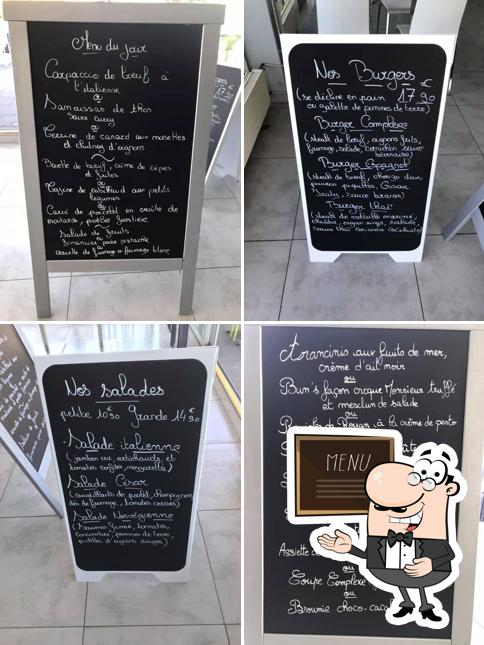 Menu du jour
Carpaccio de bœuf à
l'italienne
ou
Samoussas de thon
sauce curry
ou
Terrine de canard aux noisettes
et chutney d'oignons
Bavette de bœuf, crème de cèpes
et frites
ou
aux petits
légumes
ou
Carré de porcelet en croûte de
moutarde,
Salade de fruits
ou
Financier poire pistache
ou
Assiette de fromage ou fromage blanc
Nos Burgers
€
(se décline en pain 17,90
ou galette de pommes de terre)
Burger Complexe
(steak de bœuf, oignons frits,
fromage, salade, cornichon sauce
béarnaise)
Burger Espagnol
(steak de bœuf, chorizo doux,
poivrons piquillos,
salade, sauce bravas)
Burger thaï
(steak de
cheddar, oignons rings, salade,
sauce thaï
Nos salades
petite 10€90 grande 14€90
- Salade italienne
(jambon cru, artichauts et
tomates confites, mozzarella)
Salade César
(aiguillettes de poulet, champignons
dés de fromage, tomates cerises)
Salade Norvégienne
(saumon fumé, tomates,
concombre, pommes de terre,
pickles d'oignons rouges)
Arancinis aux fruits de mer,
crème d'ail noir
ou
Bun's façon croque Monsieur truffé
et mesclun de salade
ou
Ravioles de Royan à la crème de pesto
MENU
Assiette de
ou
Coupe Complexe
ou
Brownie choco-caca